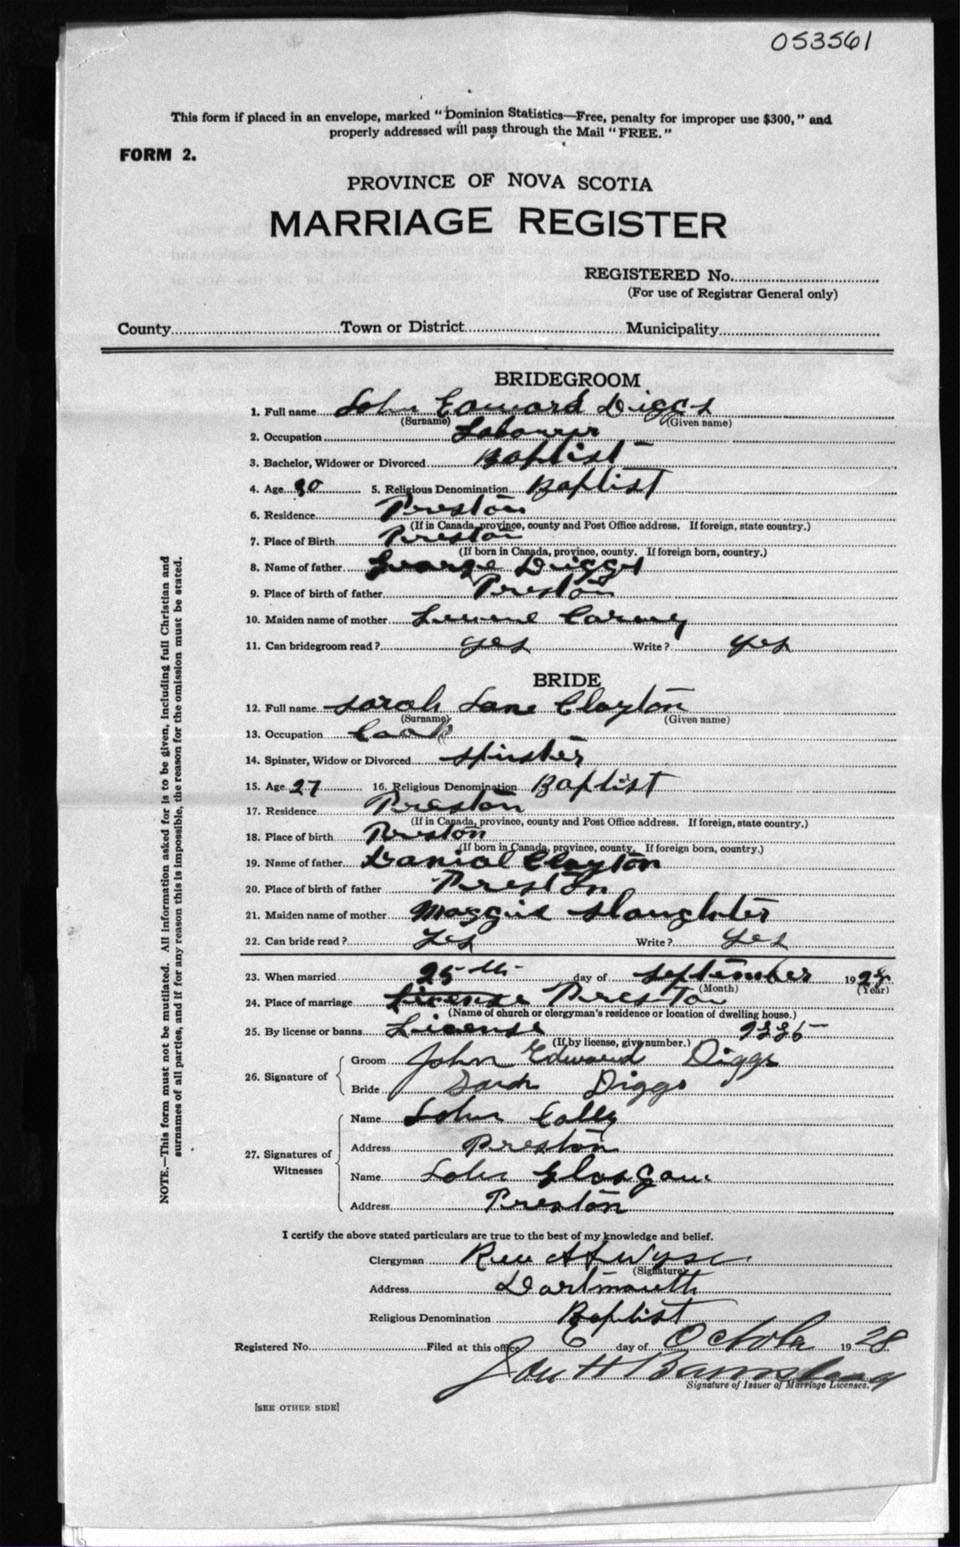 053561
This form if placed in an envelope, marked "Dominion Statistics—Free, penalty for improper use $300," and
properly addressed will pass through the Mail "FREE."
FORM 2.
PROVINCE OF NOVA SCOTIA
MARRIAGE REGISTER
REGISTERED No.
(For use of Registrar General only)
County Town or District Municipality
BRIDEGROOM
1. Full name John Edward Diggs
(Surname) (Given name)
2. Occupation Labourer
3. Bachelor, Widower or Divorced Baptist
4. Age 30 5. Religious Denomination Baptist
6. Residence Preston
(If in Canada, province, county and Post Office address. If foreign, state country.)
7. Place of Birth Preston
(If born in Canada, province, county. If foreign born, country.)
8. Name of father George Diggs
9. Place of birth of father Preston
10. Maiden name of mother
11. Can bridegroom read? yes Write? yes
BRIDE
12. Full name Sarah Jane Clayton
(Surname) (Given name)
13. Occupation Cook
14. Spinster, Widow or Divorced Spinster
15. Age 27 16. Religious Denomination Baptist
17. Residence Preston
(If in Canada, province, county and Post Office address. If foreign, state country.)
18. Place of birth Preston
(If born in Canada, province, county. If foreign born, country.)
19. Name of father Danial Clayton
20. Place of birth of father Preston
21. Maiden name of mother Maggie Slaughter
22. Can bride read? Yes Write? Yes
23. When married 25th day of September 1928
(Month) (Year)
24. Place of marriage License Preston
(Name of church or clergyman's residence or location of dwelling house.)
25. By license or banns License
(If by license, give number.)
26. Signature of
Groom John Edward Diggs
Bride Sarah Diggs
27. Signatures of Witnesses
Name John
Address Preston
Name John Glasgow
Address Preston
I certify the above stated particulars are true to the best of my knowledge and belief.
Clergyman Rev A A Wyse
(Signature)
Address Dartmouth
Religious Denomination Baptist
Registered No. Filed at this office 6 day of October 1928
Signature of Issuer of Marriage Licenses.
[SEE OTHER SIDE]
NOTE.—This form must not be mutilated. All information asked for is to be given, including full Christian and
surnames of all parties, and if for any reason this is impossible, the reason for the omission must be stated.